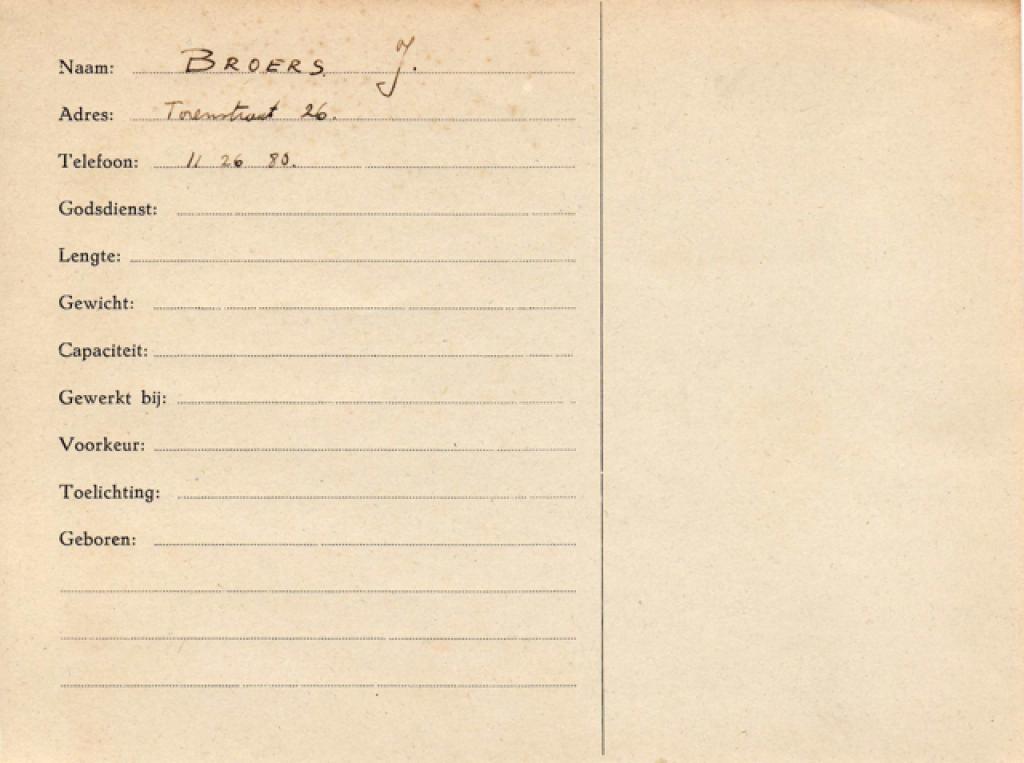 Naam: BROERS J.
Adres: Torenstraat 26.
Telefoon: 11 26 80.
Godsdienst:
Lengte:
Gewicht:
Capaciteit:
Gewerkt bij:
Voorkeur:
Toelichting:
Geboren: